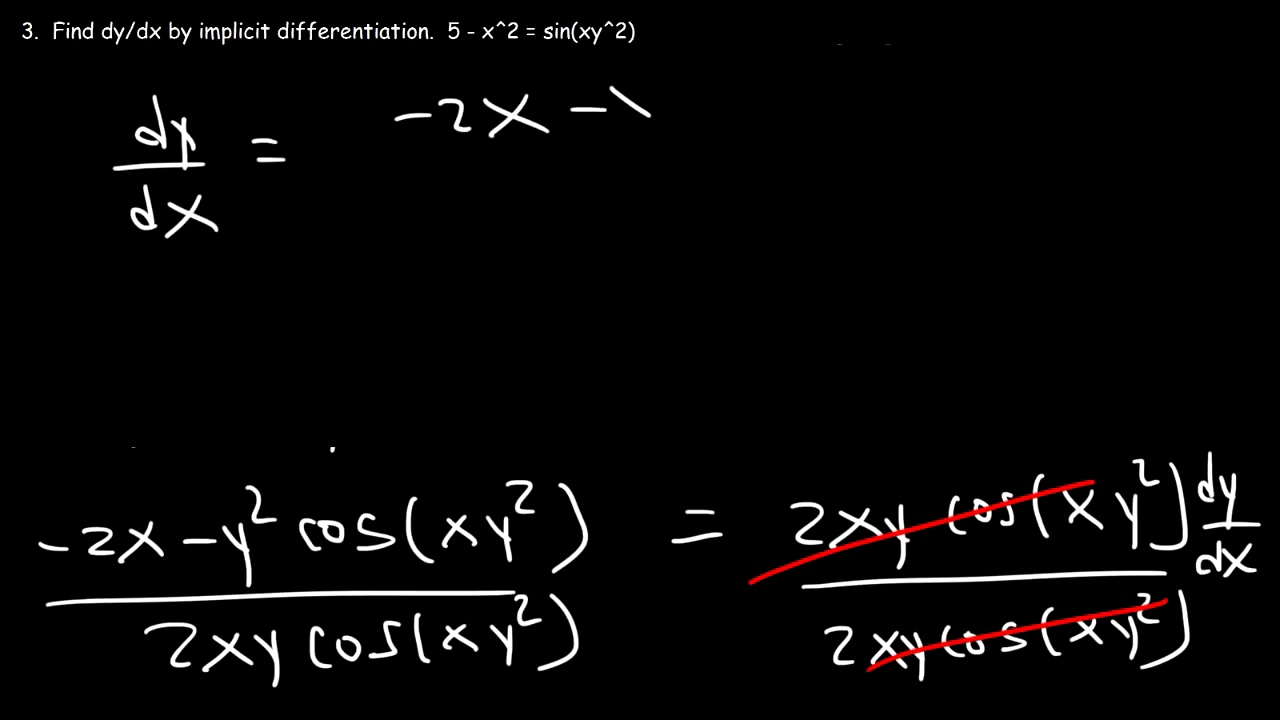 3. Find dy/dx by implicit differentiation. 5 - x^2 = sin(xy^2)
dy/dx = -2x -
(-2x - y² cos(xy²)) / (2xy cos(xy²)) = (2xy cos(xy²)) / (2xy cos(xy²)) dy/dx